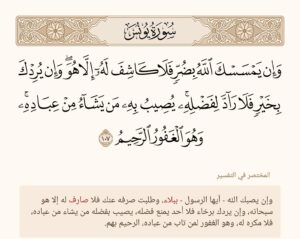 سُورَةُ يُونُسَ
وَإِن يَمْسَسْكَ ٱللَّهُ بِضُرٍّ فَلَا كَاشِفَ لَهُۥٓ إِلَّا هُوَ ۖ وَإِن يُرِدْكَ
بِخَيْرٍ فَلَا رَآدَّ لِفَضْلِهِۦ ۚ يُصِيبُ بِهِۦ مَن يَشَآءُ مِنْ عِبَادِهِۦ ۚ
وَهُوَ ٱلْغَفُورُ ٱلرَّحِيمُ ١٠٧
المختصر في التفسير
وإن يصبك الله - أيها الرسول - ببلاء، وطلبت صرفه عنك فلا صارف له إلا هو
سبحانه، وإن يردك برخاء فلا أحد يمنع فضله، يصيب بفضله من يشاء من عباده،
فلا مكره له، وهو الغفور لمن تاب من عباده، الرحيم بهم.